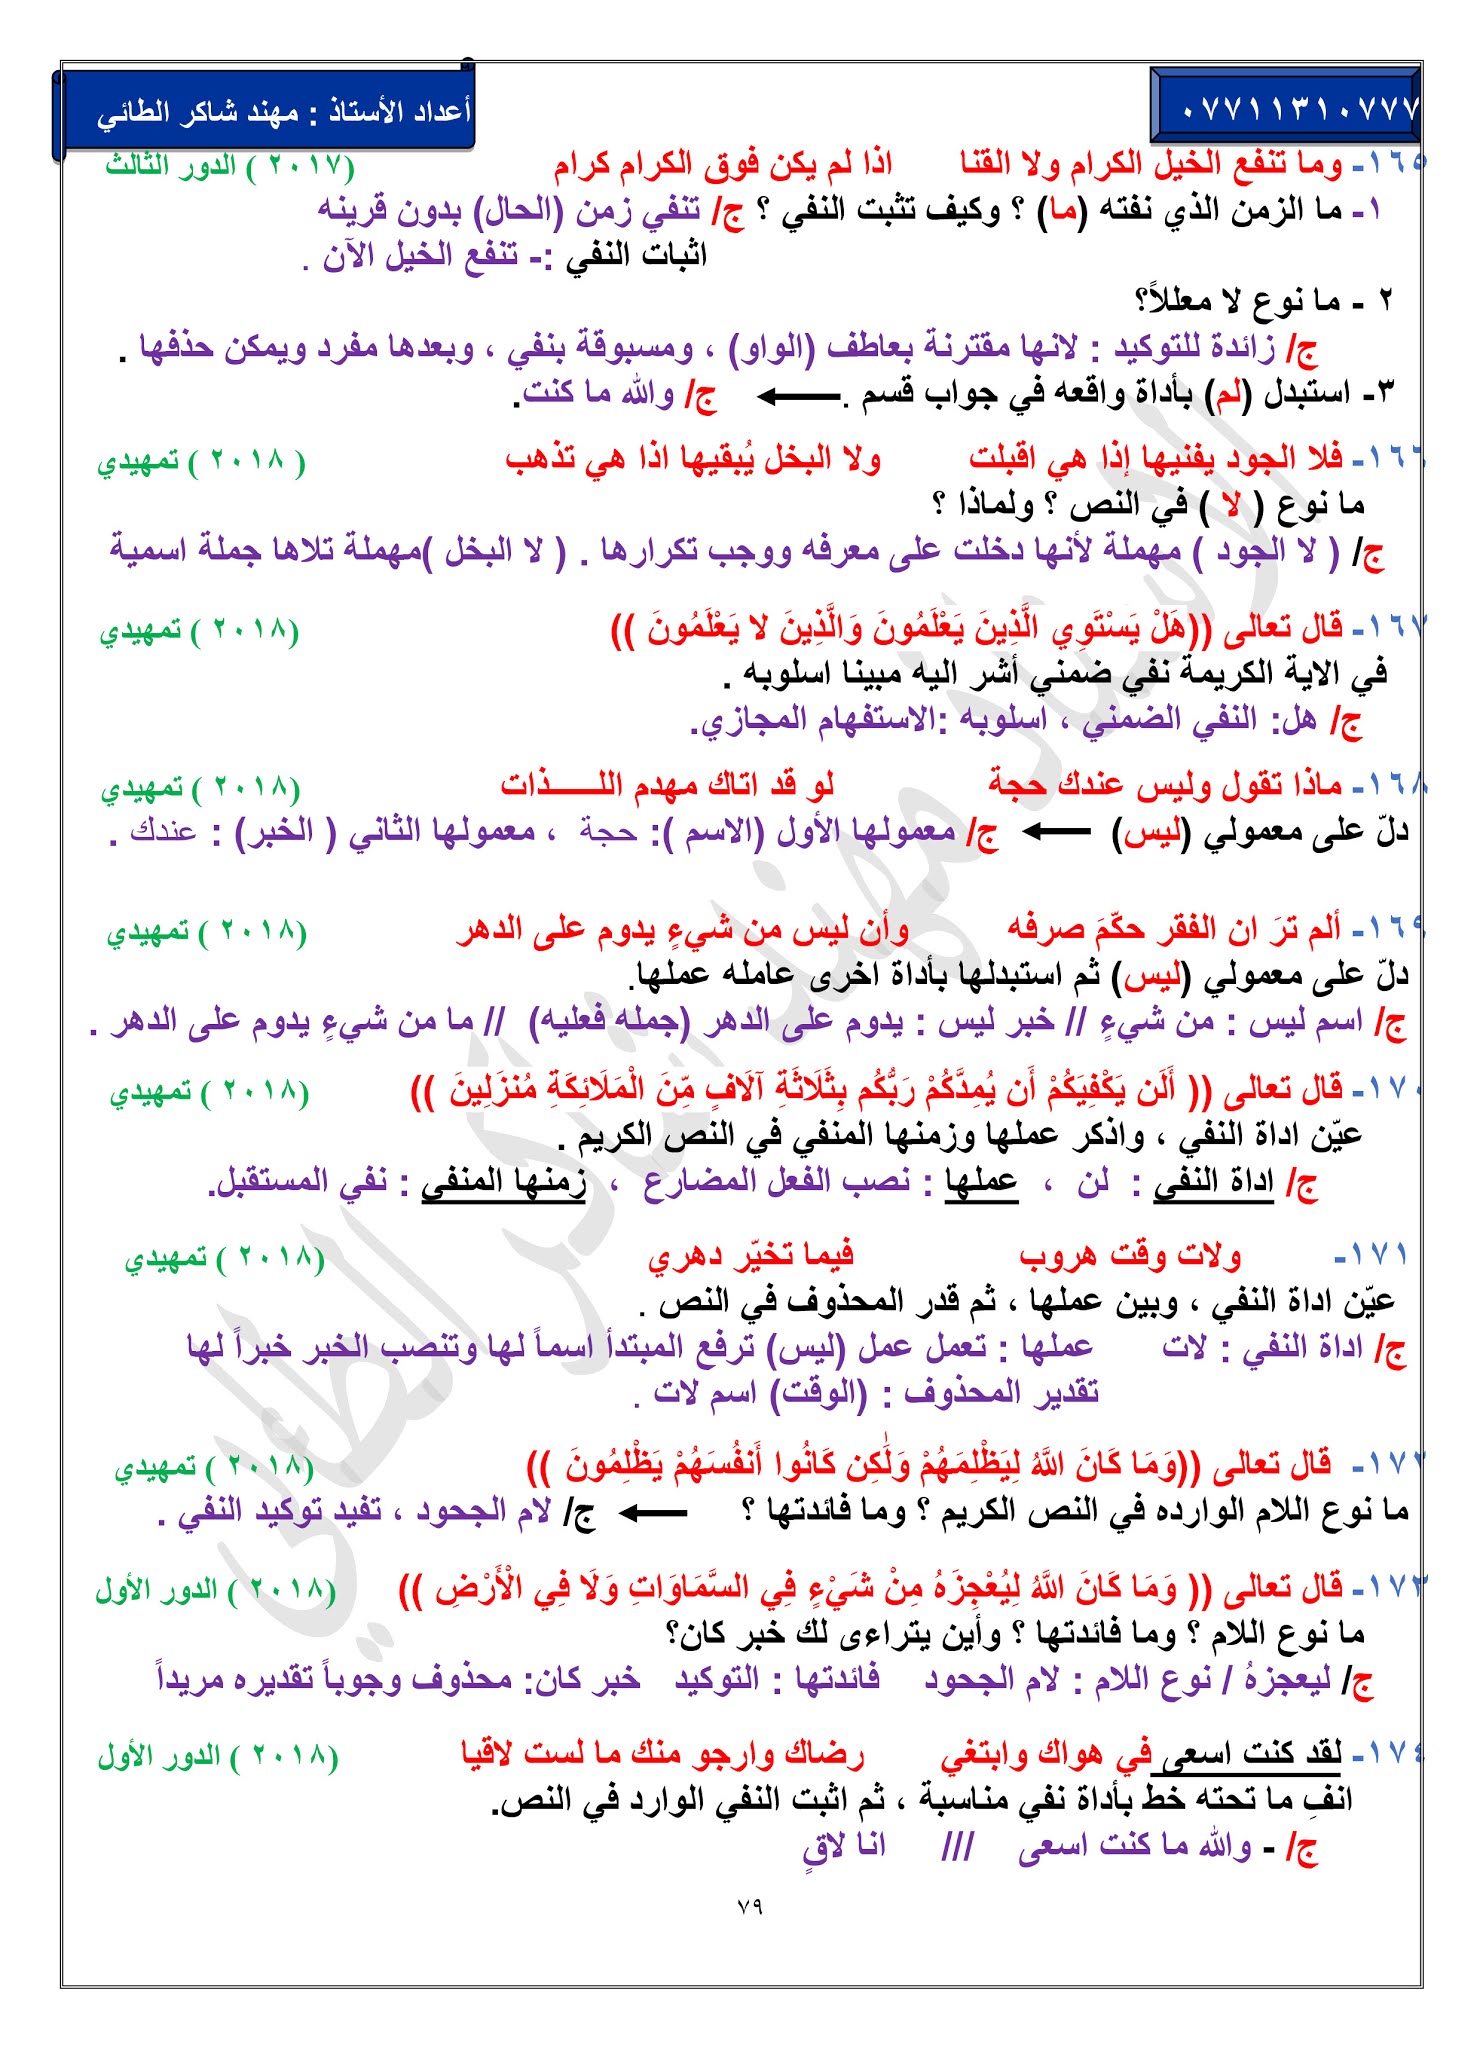 أعداد الأستاذ : مهند شاكر الطائي
٠٧٧١١٣١٠٧٧٧
١٦٥- وما تنفع الخيل الكرام ولا القنا اذا لم يكن فوق الكرام كرام (٢٠١٧ ) الدور الثالث
١- ما الزمن الذي نفته (ما) ؟ وكيف تثبت النفي ؟ ج/ تنفي زمن (الحال) بدون قرينه
اثبات النفي :- تنفع الخيل الآن .
٢ - ما نوع لا معللاً؟
ج/ زائدة للتوكيد : لانها مقترنة بعاطف (الواو) ، ومسبوقة بنفي ، وبعدها مفرد ويمكن حذفها .
٣- استبدل (لم) بأداة واقعه في جواب قسم . ج/ والله ما كنت.
١٦٦- فلا الجود يفنيها إذا هي اقبلت ولا البخل يُبقيها اذا هي تذهب ( ٢٠١٨ ) تمهيدي
ما نوع ( لا ) في النص ؟ ولماذا ؟
ج/ ( لا الجود ) مهملة لأنها دخلت على معرفه ووجب تكرارها . ( لا البخل )مهملة تلاها جملة اسمية
١٦٧- قال تعالى ((هَلْ يَسْتَوِي الَّذِينَ يَعْلَمُونَ وَالَّذِينَ لا يَعْلَمُونَ )) (٢٠١٨ ) تمهيدي
في الاية الكريمة نفي ضمني أشر اليه مبينا اسلوبه .
ج/ هل: النفي الضمني ، اسلوبه :الاستفهام المجازي.
١٦٨- ماذا تقول وليس عندك حجة لو قد اتاك مهدم اللـــــذات (٢٠١٨ ) تمهيدي
دلّ على معمولي (ليس) ج/ معمولها الأول (الاسم ): حجة ، معمولها الثاني ( الخبر) : عندك .
١٦٩- ألم ترَ ان الفقر حكّمَ صرفه وأن ليس من شيءٍ يدوم على الدهر (٢٠١٨ ) تمهيدي
دلّ على معمولي (ليس) ثم استبدلها بأداة اخرى عامله عملها.
ج/ اسم ليس : من شيءٍ // خبر ليس : يدوم على الدهر (جمله فعليه) // ما من شيءٍ يدوم على الدهر .
١٧٠- قال تعالى (( أَلَن يَكْفِيَكُمْ أَن يُمِدَّكُمْ رَبُّكُم بِثَلَاثَةِ آلَافٍ مِّنَ الْمَلَائِكَةِ مُنزَلِينَ )) (٢٠١٨ ) تمهيدي
عيّن اداة النفي ، واذكر عملها وزمنها المنفي في النص الكريم .
ج/ اداة النفي : لن ، عملها : نصب الفعل المضارع ، زمنها المنفي : نفي المستقبل.
١٧١- ولات وقت هروب فيما تخيّر دهري (٢٠١٨ ) تمهيدي
عيّن اداة النفي ، وبين عملها ، ثم قدر المحذوف في النص .
ج/ اداة النفي : لات عملها : تعمل عمل (ليس) ترفع المبتدأ اسماً لها وتنصب الخبر خبراً لها
تقدير المحذوف : (الوقت) اسم لات .
١٧٢- قال تعالى ((وَمَا كَانَ اللهُ لِيَظْلِمَهُمْ وَلَٰكِن كَانُوا أَنفُسَهُمْ يَظْلِمُونَ )) (٢٠١٨ ) تمهيدي
ما نوع اللام الوارده في النص الكريم ؟ وما فائدتها ؟ ج/ لام الجحود ، تفيد توكيد النفي .
١٧٣- قال تعالى (( وَمَا كَانَ اللهُ لِيُعْجِزَهُ مِنْ شَيْءٍ فِي السَّمَاوَاتِ وَلَا فِي الْأَرْضِ )) (٢٠١٨ ) الدور الأول
ما نوع اللام ؟ وما فائدتها ؟ وأين يتراءى لك خبر كان؟
ج/ ليعجزهُ / نوع اللام : لام الجحود فائدتها : التوكيد خبر كان: محذوف وجوباً تقديره مريداً
١٧٤- لقد كنت اسعى في هواك وابتغي رضاك وارجو منك ما لست لاقيا (٢٠١٨ ) الدور الأول
انفِ ما تحته خط بأداة نفي مناسبة ، ثم اثبت النفي الوارد في النص.
ج/ - والله ما كنت اسعى /// انا لاقٍ
٧٩
الاستاذ مهند شاكر الطائي